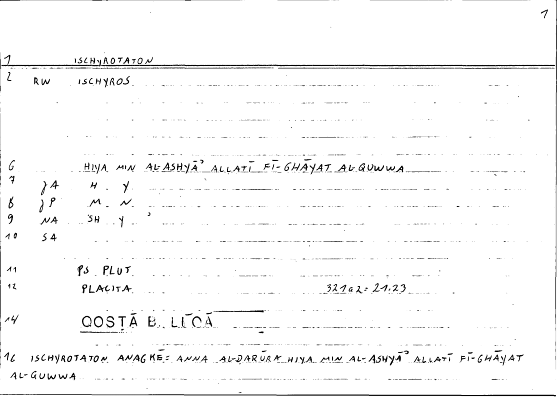 1
1 ISCHYROTATON
2 RW ISCHYROS
6 HIYA MIN AL-ASHYĀʾ ALLATĪ FĪ-GHĀYAT AL-QUWWA
7 JA H Y
8 JP M N
9 NA SH Y ʾ
10 SA
11 PS PLUT
12 PLACITA 321a2=21.23
14 QOSṬĀ B. LŪQĀ
16 ISCHYROTATON ANAGKĒ= ANNA AL-ḌARŪRA HIYA MIN AL-ASHYĀʾ ALLATĪ FĪ-GHĀYAT
AL-QUWWA